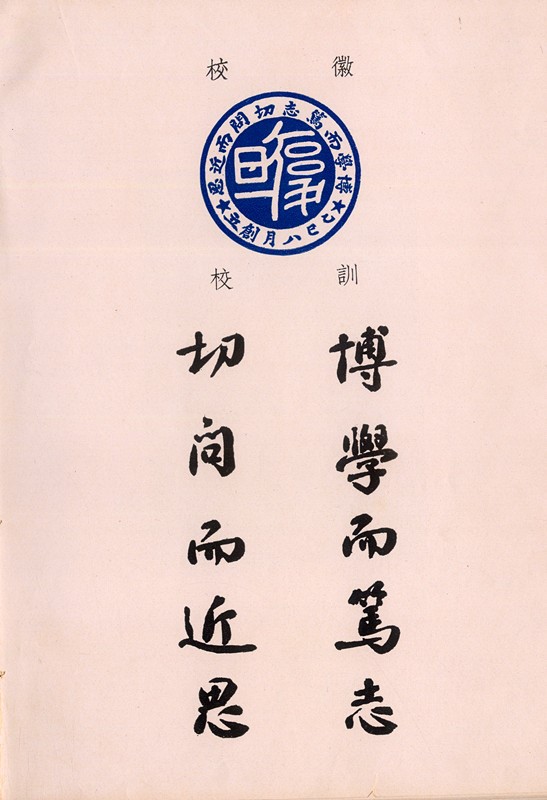 校徽
博學而篤志切問而近思
乙巳八月創立
復旦
校訓
博學而篤志
切問而近思